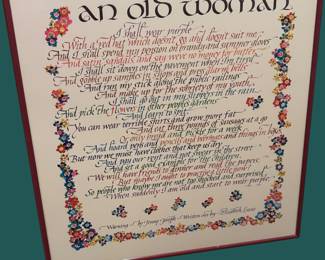 an old woman
I shall wear purple
With a red hat which doesn't go and doesn't suit me
And I shall spend my pension on brandy and summer gloves
And satin sandals and say we've no money for butter
I shall sit down on the pavement when I'm tired
And gobble up samples in shops and press alarm bells
And run my stick along the public railings
And make up for the sobriety of my youth
I shall go out in my slippers in the rain
And pick the flowers in other peoples gardens
And learn to spit
You can wear terrible shirts and grow more fat
And eat three pounds of sausages at a go
Or only bread and pickle for a week
And hoard pens and pencils and beermats and things in boxes
But now we must have clothes that keep us dry
And pay our rent and not swear in the street
And set a good example for the children
We will have friends to dinner and read the papers
But maybe I ought to practice a little now?
So people who know me are not too shocked and surprised
When suddenly I am old and start to wear purple
Warning by Jenny Joseph Written out by Elizabeth